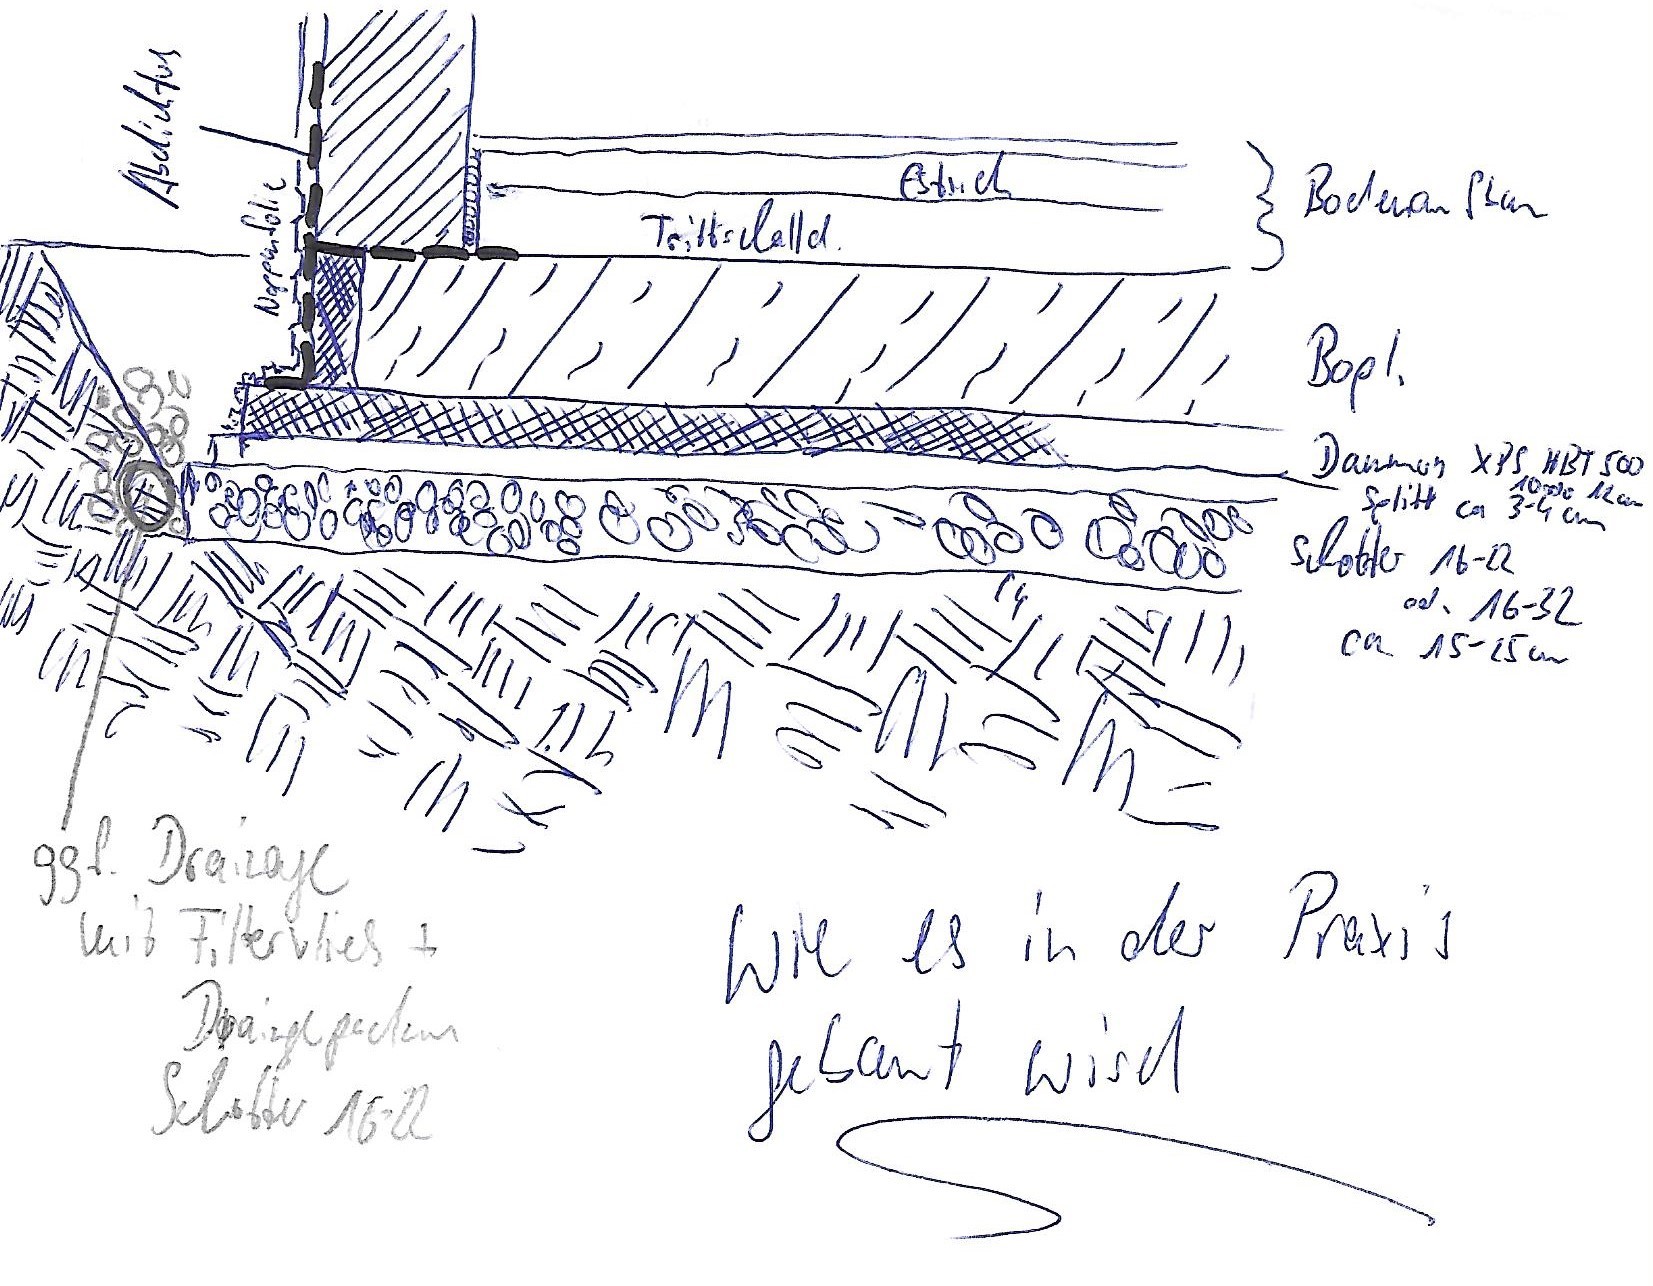 Abdichtung
Noppenfolie
Estrich
Trittschalld.
Bodenaufbau
Bopl.
Dämmung XPS WBT 500
10 oder 12 cm
Splitt ca 3-4 cm
Schotter 16-22
od. 16-32
ca 15-25 cm
ggf. Drainage
mit Filtervlies +
Schotter 16-22
Wie es in der Praxis
gebaut wird